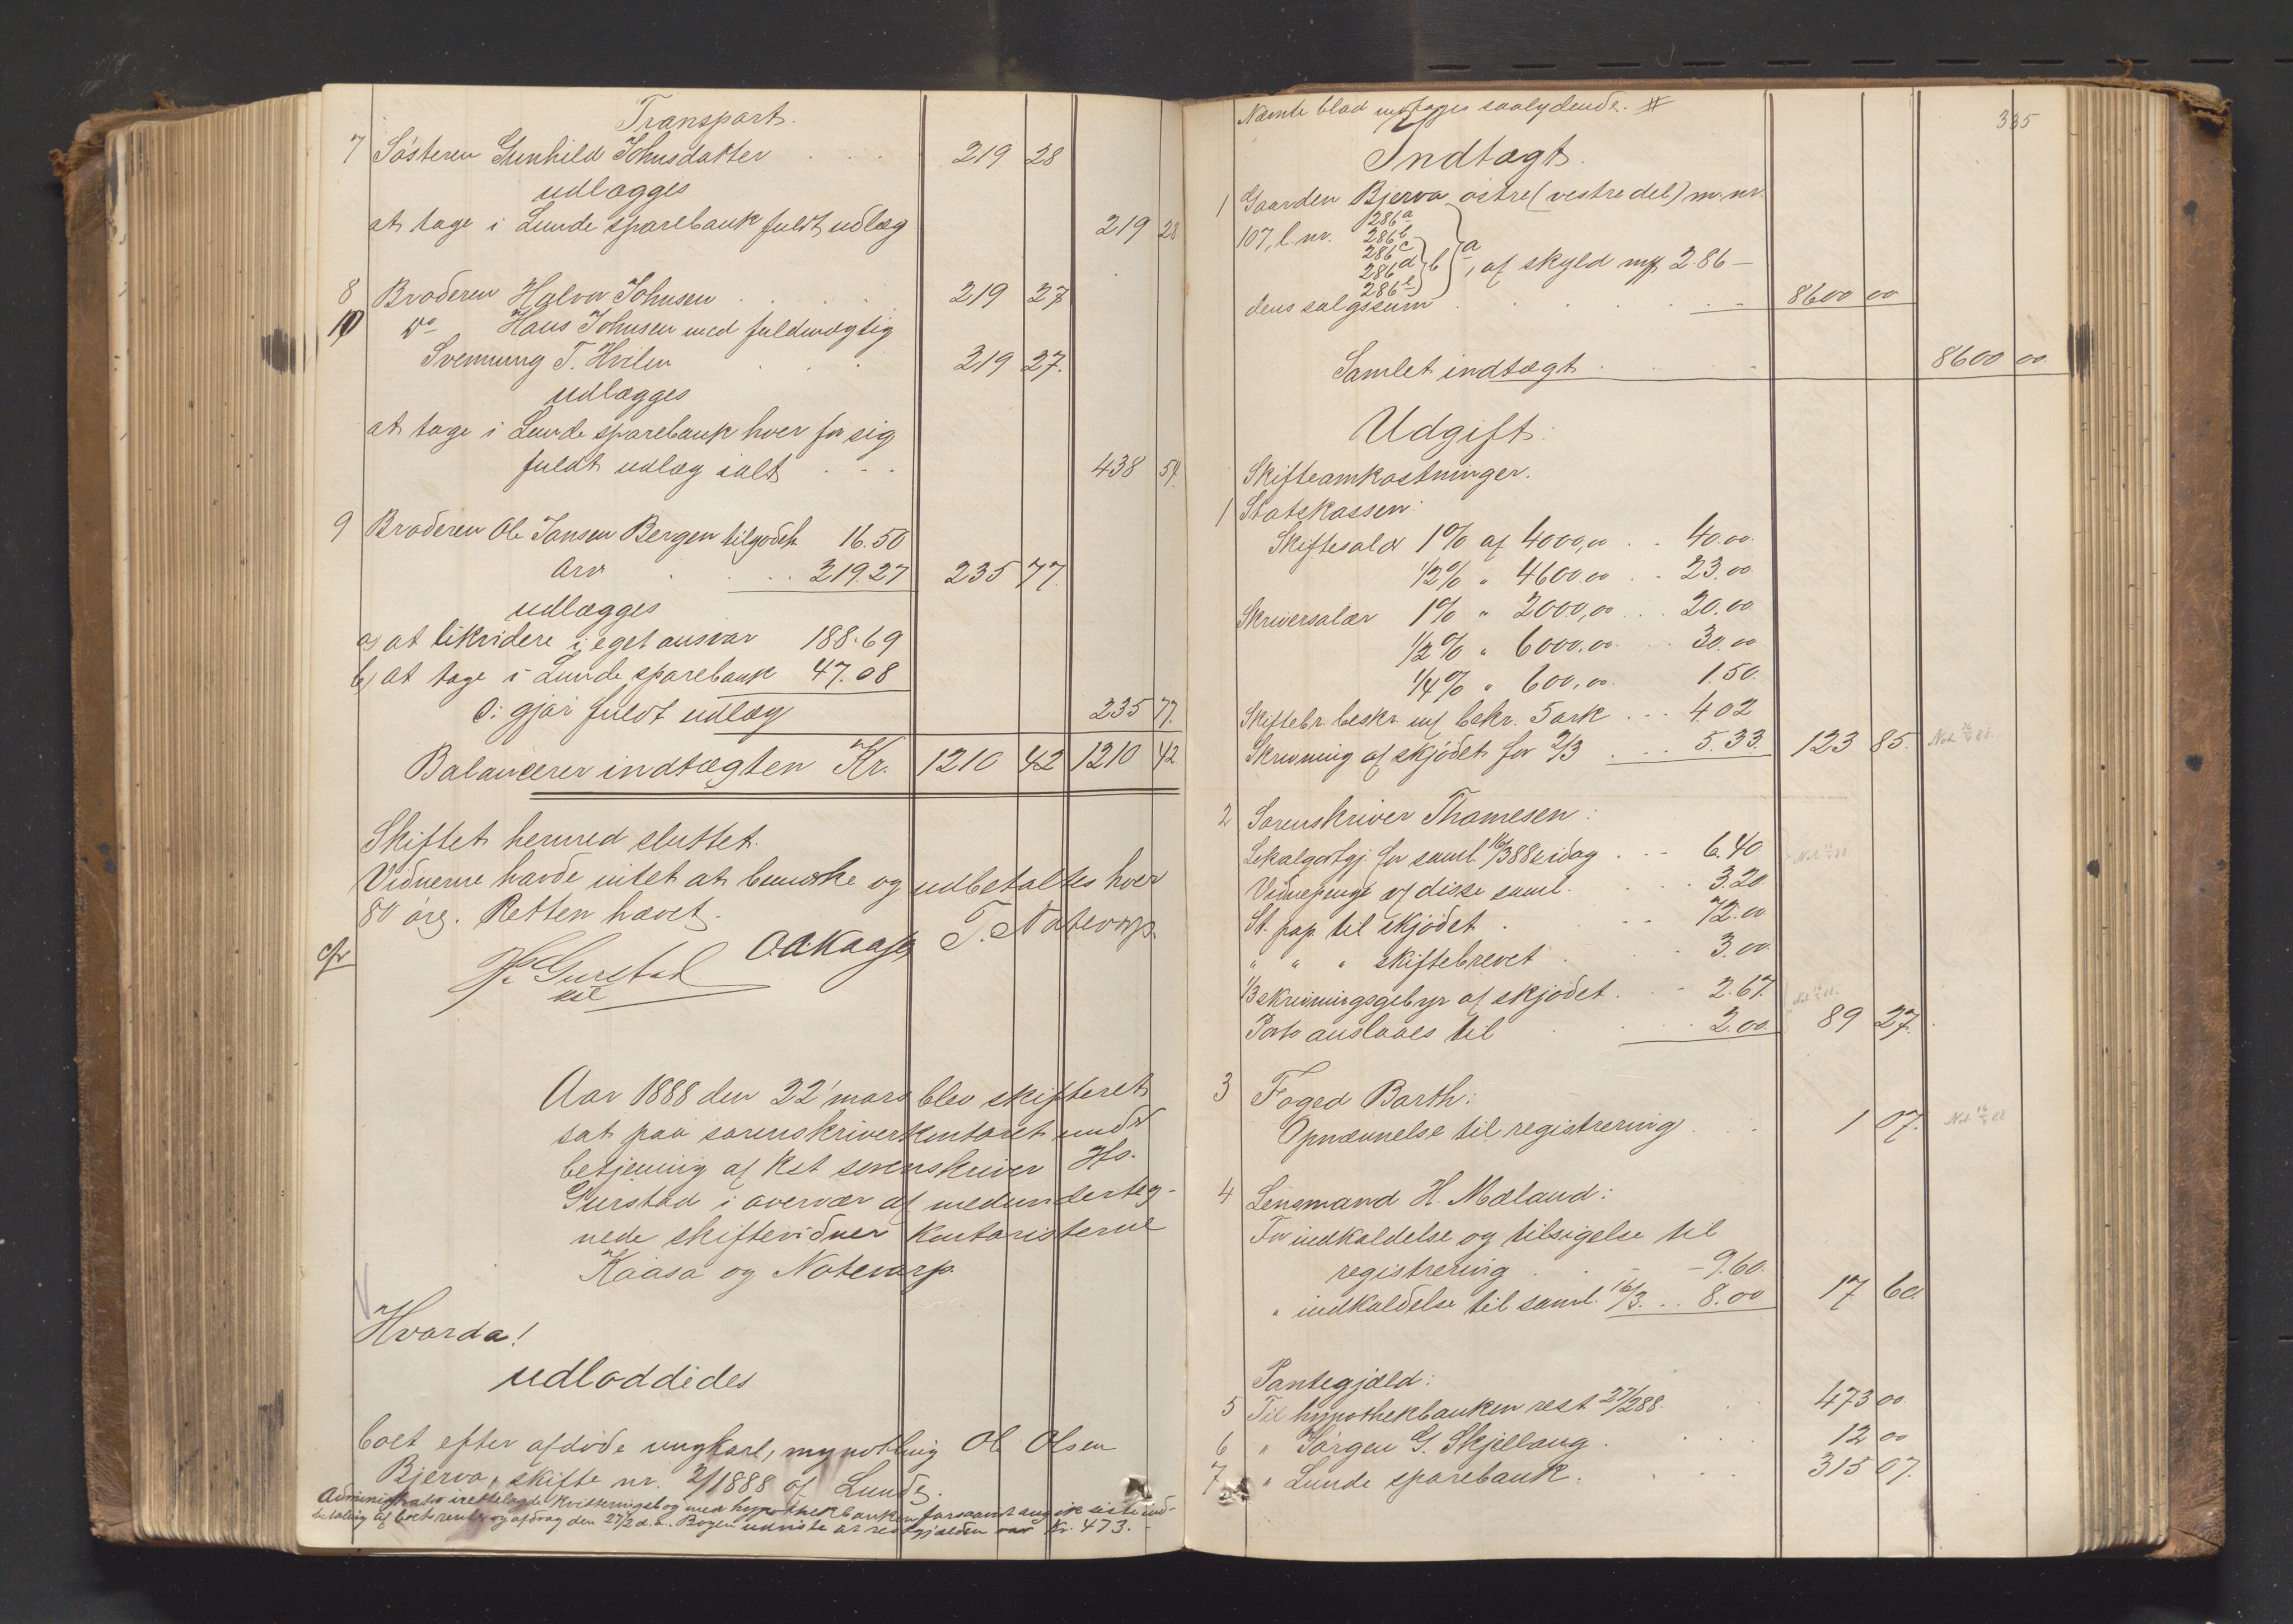 Transport.
7 Søsteren Gunhild Johnsdatter . . . 219 28
udlægges
at tage i Lunde sparebank fuldt udlæg 219 28
8 Broderen Halvor Johnsen . . . 219 27
10 do Hans Johnsen med fuldmægtig
Svennung T. Hvilen . . . 219 27.
udlægges
at tage i Lunde sparebank hver for sig
fuldt udlæg ialt . . . 438 54.
9 Broderen Ole Jansen Bergen tilgodeh. 16.50
Arv . . . . 219.27 235 77.
udlægges
a) at likvidere i eget ansvar 188.69
b) at tage i Lunde sparebank 47.08
ɔ: gjør fuldt udlæg 235 77.
Balancerer indtægten Kr. 1210 42 1210 42.
Skiftet hermed sluttet.
Vidnerne havde intet at bemærke og udbetaltes hver
80 øre. Retten hævet.
Hs Gurstad O.A. Kaasa T. Notevarp.
kst
Aar 1888 den 22' mars blev skifteret
sat paa sorenskriverkontoret under
betjening af kst sorenskriver Hs.
Gurstad i overvær af medunderteg-
nede skiftevidner kontoristerne
Kaasa og Notevarp.
Hvorda!
udloddedes
boet efter afdøde ungkarl, myndling Ole Olsen
Bjerva, skifte nr. 2/1888 af Lunde.
Administrator irettelagde kvitteringsbog med hypothekbanken forsaavidt angik siste ind-
betaling af boets renter og afdrag den 27/2 d.a. Bogen udviste at restgjælden var Kr. 473.-
335
Næmte blad modtages saalydende. #
Indtægt.
1 Gaarden Bjerva østre (vestre del) m.nr.
286a
107, l.nr. 286b
286c
286d b a , af skyld mk 2.86 –
286e
dens salgssum . . . . . 8600 00
Samlet indtægt . . . 8600 00.
Udgift:
Skifteomkostninger.
1 Statskassen:
Skiftesalær 1% af 4000,00 . . 40.00.
1/2% " 4600.00 . . 23.00.
Skriversalær 1% " 2000,00 . . 20.00
1/2% " 6000.00. . . 30.00
1/4% " 600,00. 1.50.
Skiftebr. beskr. mf bekr. 5 ark . . . 4.02
Skrivning af skjødet for 2/3 . . . 5.33. 123 85.
2 Sorenskriver Thomesen:
Lokalgodtgj. for saml. 16/3 88 & idag . . . 6.40
Vidnepenge af disse saml. . . . 3.20
St. pap. til skjødet . . . 72.00
" " " skiftebrevet . . . 3.00
1/3 skrivningsgebyr af skjødet . . . 2.67.
Porto anslaaes til . . . 2.00. 89 27.
3 Foged Barth:
Opnævnelse til registrering . . . 1 07.
4 Lensmand H. Mæland:
For indkaldelse og tilsigelse til
registrering . . . 9.60.
" indkaldelse til saml. 16/3. . . 8.00 17 60
Pantegjæld:
5 Til hypothekbanken rest 27/2 88. . 473 00.
6 " Jørgen G. Skjellaug . . . 12 00
7 " Lunde sparebank. . . . 315 07.